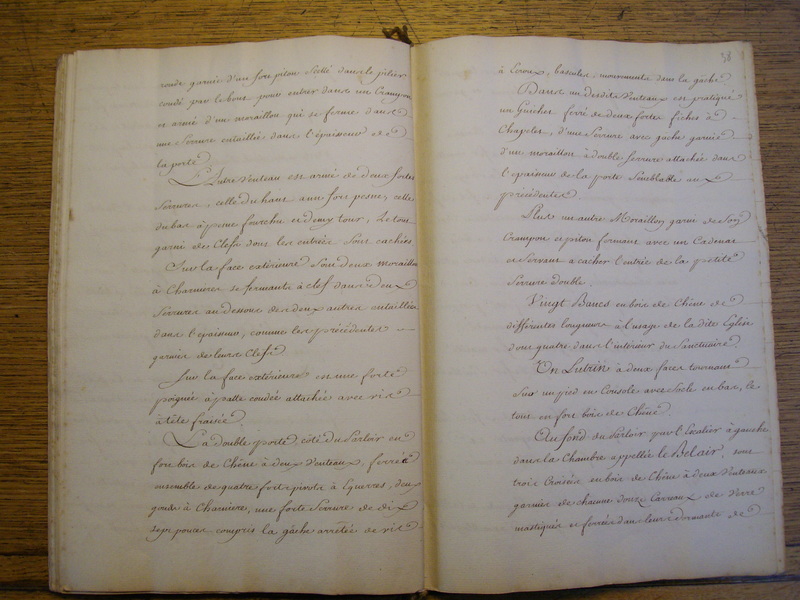 ronde garnie d'un fort piton scellé dans le pilier
coudé par le bout pour entrer dans un Crampon
et armé d'un moraillon qui se ferme dans
une Serrure entaillée dans l'épaisseur de
la porte
L'Autre Venteau est armé de deux fortes
Serrures, celle du haut a un fort pesne, celle
du bas à pesne fourchu et demy tour, Le tout
garni de Clefs dont les entrées sont cachées
Sur la face extérieure sont deux moraillons
à Charnieres se fermants à clef dans deux
Serrures au dessous des deux autres entaillées
dans l'epaisseur, comme les précédentes
garnies de leurs Clefs
Sur la face extérieure est une forte
poignée à patte coudée attachée avec vis
à tête fraisée
La double porte, côté du Parloir en
fort bois de Chêne à deux Venteaux, ferrée
ensemble de quatre forts pivots à Equerres, deux
gonds à Charniere, une forte Serrure de dix
sept pouces compris la gâche arrêtée de vis
38
à Ecroux, bascules, mouvements dans la gâche
Dans un desdits Venteaux est pratiqué
un Guichet ferré de deux fortes fiches à
Chapelet, d'une Serrure avec gache garnie
d'un moraillon à double Serrure attachée dans
l'epaisseur de la porte Semblable aux
précédentes
Plus un autre Moraillon garni de Son
Crampon et piton fermant avec un Cadenat
et Servant à cacher l'entrée de la petite
Serrure double
Vingt Bancs en bois de Chêne de
différentes longueurs à l'usage de la dite Eglise
dont quatre dans l'interieur du Sanctuaire
Un Lutrin à deux faces tournant
Sur un pied en Console avec Socle en bas, le
tout en fort bois de Chêne
Au fond du Parloir par l'Escalier à gauche
dans la Chambre appellée le Belair, sont
trois Croisées en bois de Chêne à deux Venteaux
garnies de chacune douze Carreaux de Verre
mastiqués et ferrées dans leurs dormants de